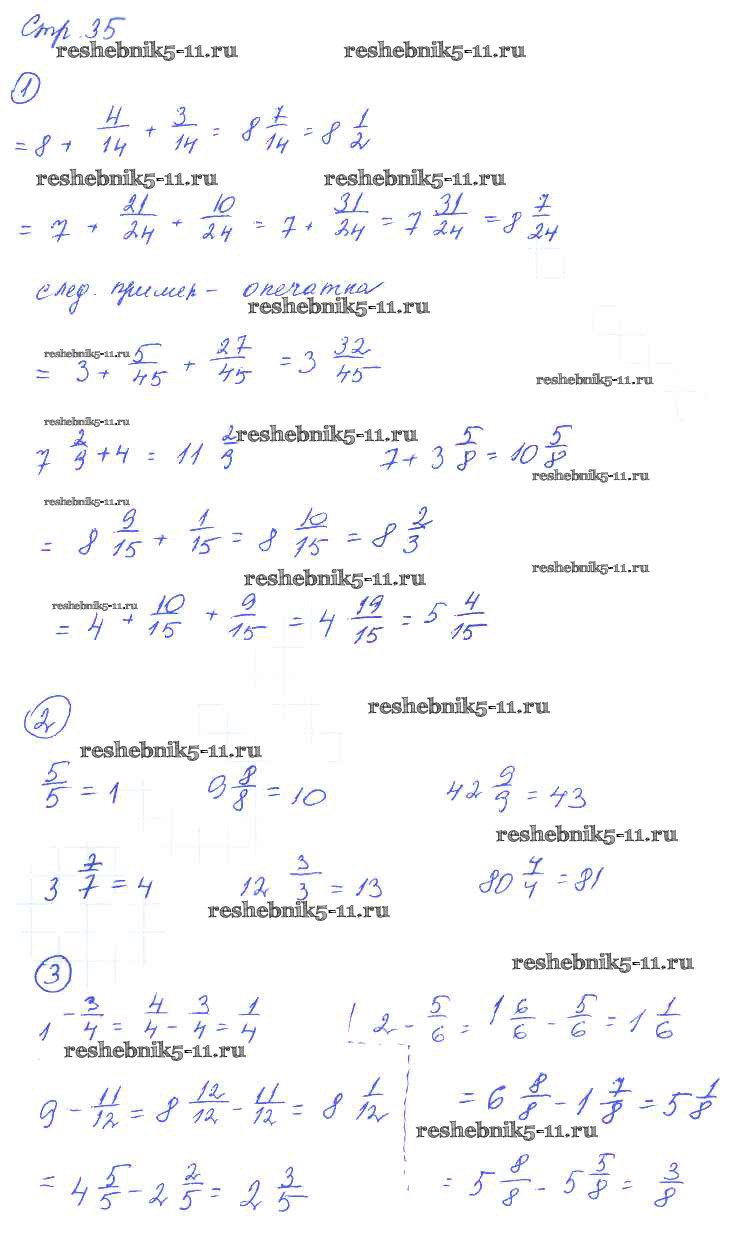 Стр. 35
reshebnik5-11.ru reshebnik5-11.ru
1
= 8 + 4/14 + 3/14 = 8 7/14 = 8 1/2
reshebnik5-11.ru reshebnik5-11.ru
= 7 + 21/24 + 10/24 = 7 + 31/24 = 7 31/24 = 8 7/24
след. пример – опечатка
reshebnik5-11.ru
reshebnik5-11.ru
= 3 + 5/45 + 27/45 = 3 32/45
reshebnik5-11.ru
reshebnik5-11.ru
reshebnik5-11.ru
7 2/9 + 4 = 11 2/9 7 + 3 5/8 = 10 5/8
reshebnik5-11.ru
reshebnik5-11.ru
= 8 9/15 + 1/15 = 8 10/15 = 8 2/3
reshebnik5-11.ru
reshebnik5-11.ru
reshebnik5-11.ru
= 4 + 10/15 + 9/15 = 4 19/15 = 5 4/15
reshebnik5-11.ru
2
reshebnik5-11.ru
5/5 = 1 9 8/8 = 10 42 9/9 = 43
reshebnik5-11.ru
3 7/7 = 4 12 3/3 = 13 80 4/4 = 81
reshebnik5-11.ru
reshebnik5-11.ru
3
1 - 3/4 = 4/4 - 3/4 = 1/4 2 - 5/6 = 1 6/6 - 5/6 = 1 1/6
reshebnik5-11.ru
9 - 11/12 = 8 12/12 - 11/12 = 8 1/12 = 6 8/8 - 1 7/8 = 5 1/8
reshebnik5-11.ru
= 4 5/5 - 2 2/5 = 2 3/5 = 5 8/8 - 5 5/8 = 3/8